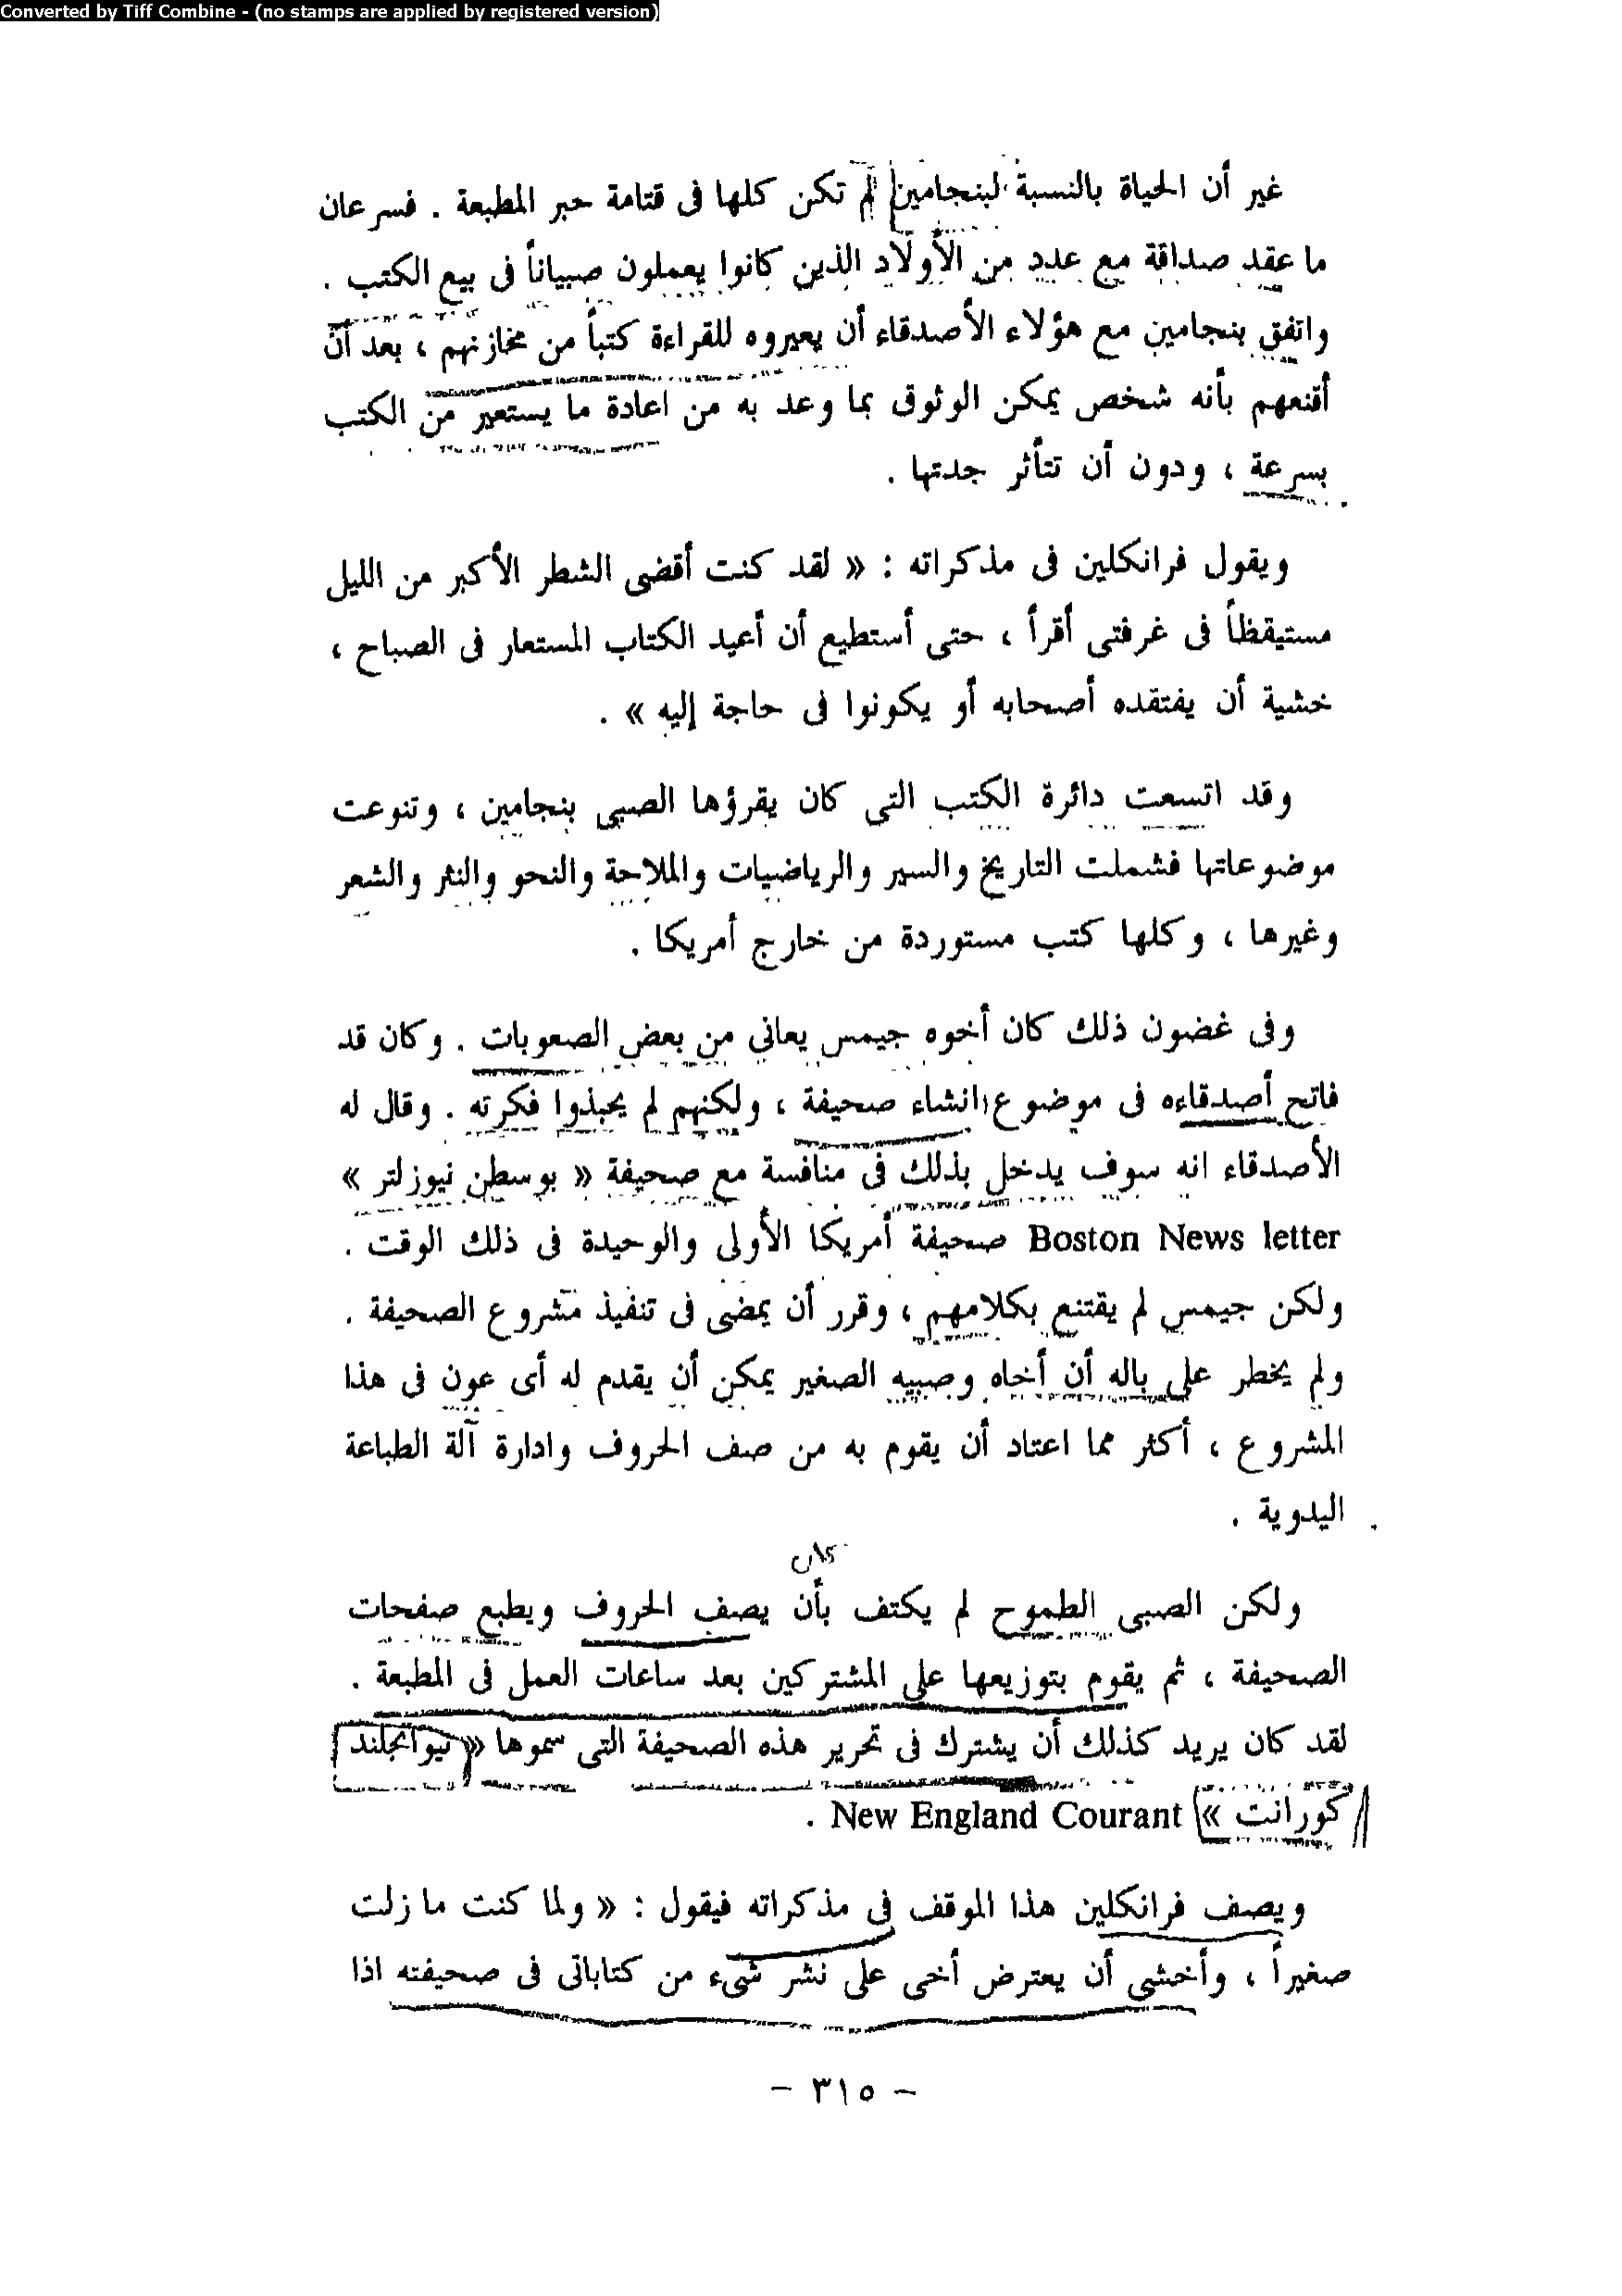 Converted by Tiff Combine - (no stamps are applied by registered version)
غير أن الحياة بالنسبة لبنجامين لم تكن كلها فى قتامة حبر المطبعة . فسرعان
ما عقد صداقة مع عدد من الأولاد الذين كانوا يعملون صبياناً فى بيع الكتب .
واتفق بنجامين مع هؤلاء الأصدقاء أن يعيروه للقراءة كتباً من مخازنهم ، بعد أن
أقنعهم بأنه شخص يمكن الوثوق بما وعد به من اعادة ما يستعير من الكتب
بسرعة ، ودون أن تتأثر جدتها .
ويقول فرانكلين فى مذكراته : « لقد كنت أقضى الشطر الأكبر من الليل
مستيقظاً فى غرفتى أقرأ ، حتى أستطيع أن أعيد الكتاب المستعار فى الصباح ،
خشية أن يفتقده أصحابه أو يكونوا فى حاجة إليه » .
وقد اتسعت دائرة الكتب التى كان يقرؤها الصبى بنجامين ، وتنوعت
موضوعاتها فشملت التاريخ والسير والرياضيات والملاحة والنحو والنثر والشعر
وغيرها ، وكلها كتب مستوردة من خارج أمريكا .
وفى غضون ذلك كان أخوه جيمس يعانى من بعض الصعوبات . وكان قد
فاتح أصدقاءه فى موضوع انشاء صحيفة ، ولكنهم لم يحبذوا فكرته . وقال له
الأصدقاء انه سوف يدخل بذلك فى منافسة مع صحيفة « بوسطن نيوزلتر »
Boston News letter صحيفة أمريكا الأولى والوحيدة فى ذلك الوقت .
ولكن جيمس لم يقتنع بكلامهم ، وقرر أن يمضى فى تنفيذ مشروع الصحيفة .
ولم يخطر على باله أن أخاه وصبيه الصغير يمكن أن يقدم له أى عون فى هذا
المشروع ، أكثر مما اعتاد أن يقوم به من صف الحروف وادارة آلة الطباعة
اليدوية .
كان
ولكن الصبى الطموح لم يكتف بأن يصف الحروف ويطبع صفحات
الصحيفة ، ثم يقوم بتوزيعها على المشتركين بعد ساعات العمل فى المطبعة .
لقد كان يريد كذلك أن يشترك فى تحرير هذه الصحيفة التى سموها « نيوانجلند
كورانت » New England Courant .
ويصف فرانكلين هذا الموقف فى مذكراته فيقول : « ولما كنت ما زلت
صغيراً ، وأخشى أن يعترض أخى على نشر شىء من كتاباتى فى صحيفته اذا
– ٣١٥ –